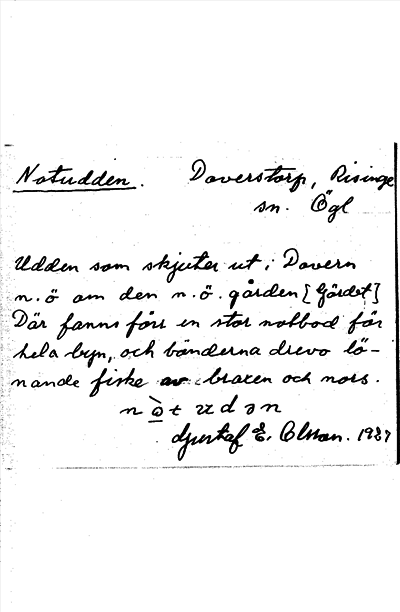 Notudden. Doverstorp, Risinge
sn. Ögl
Udden som skjuter ut i Dovern
n.ö om den n.ö. gården [Gärdet]
Där fanns förr en stor notbod för
hela byn, och bönderna drevo lö-
nande fiske av braxen och nors.
n ò t ʉ d ə n
Gustaf E. Olsson. 1927